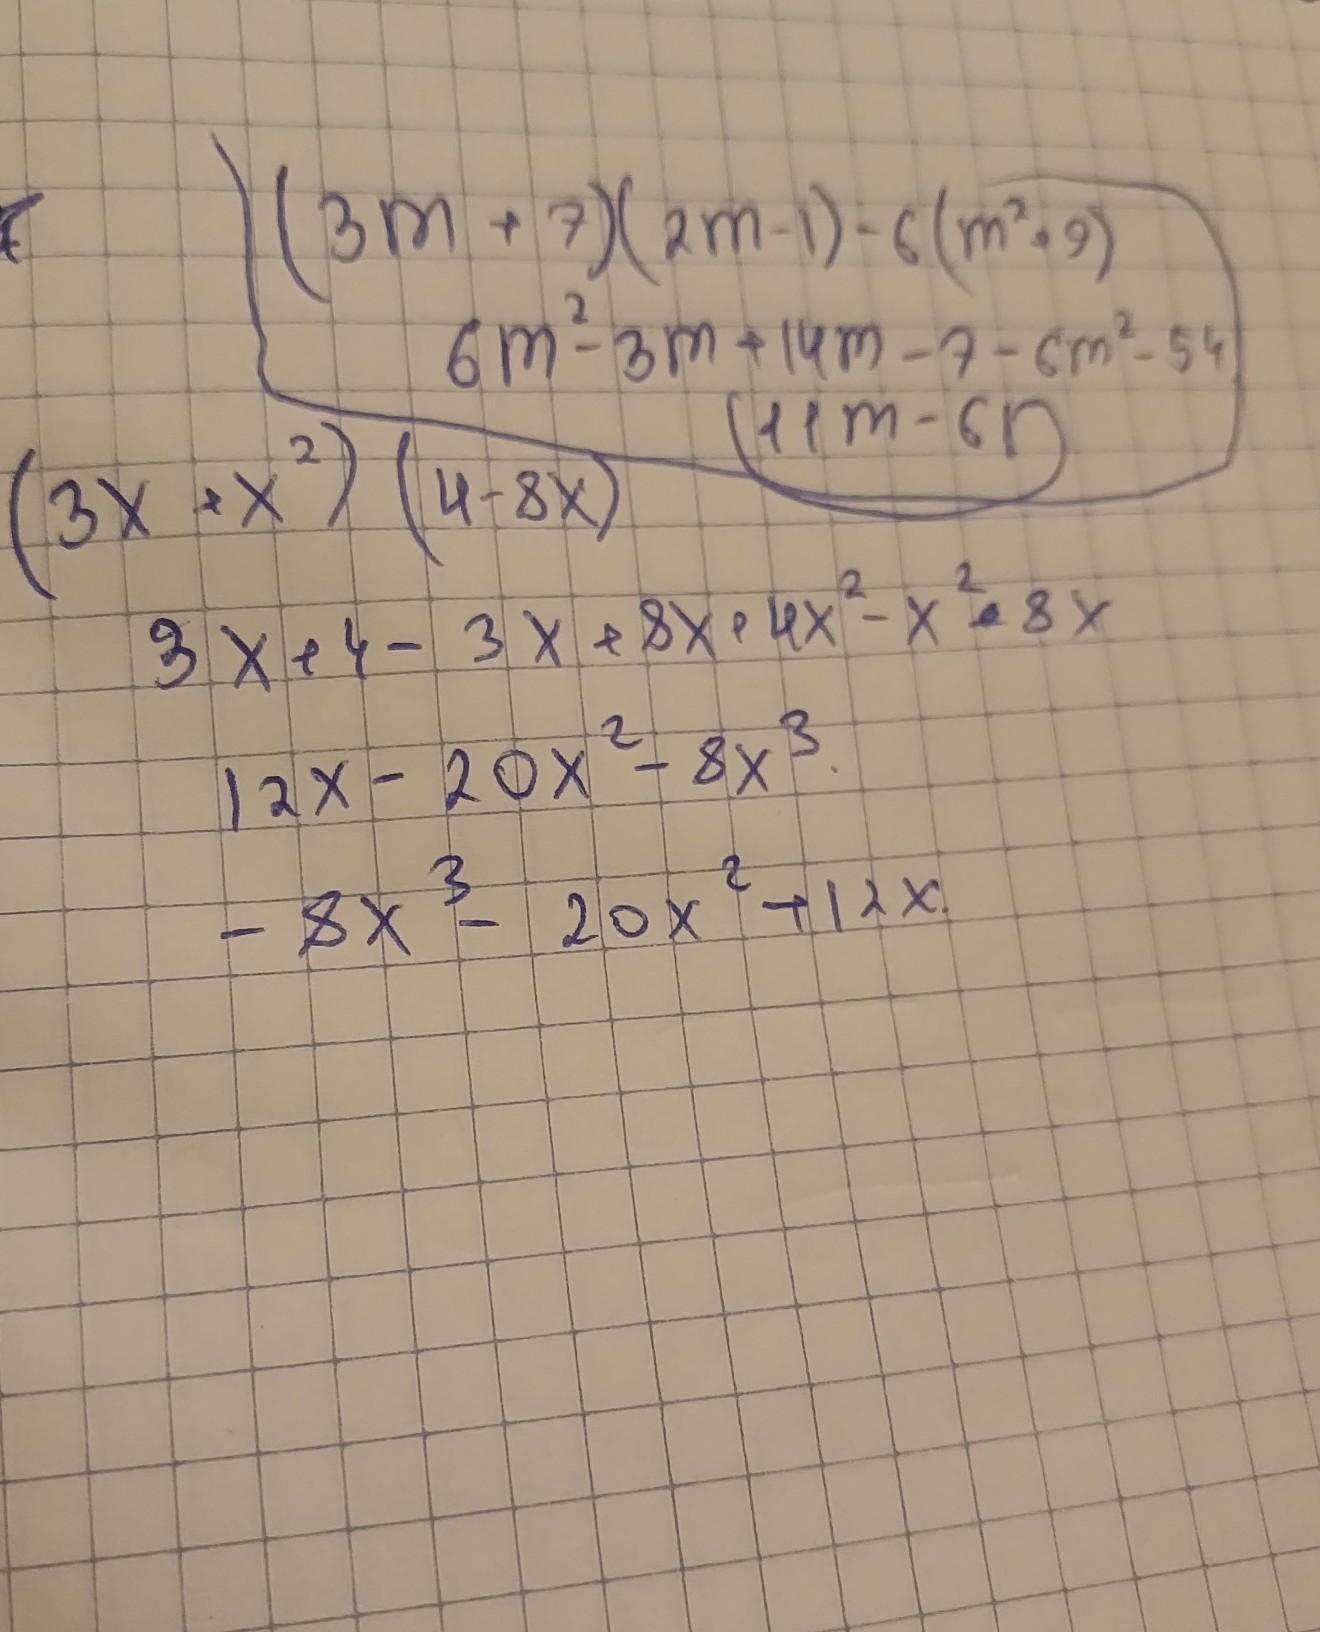 (3m + 7)(2m-1)-6(m²+9)
6m²-3m+14m-7-6m²-54
(11m-61)
(3x+x²) (4-8x)
3x+4-3x+8x+4x²-x²•8x
12x-20x²-8x³.
-8x³-20x²+12x.